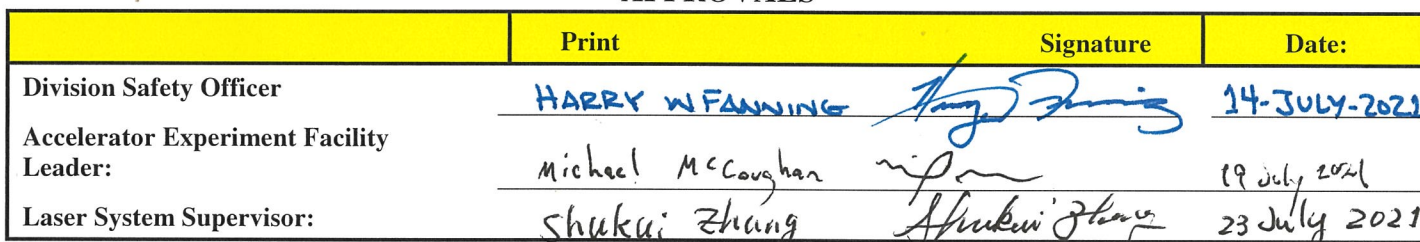 APPROVALS
Print Signature Date:
Division Safety Officer HARRY W FANNING 14-JULY-2021
Accelerator Experiment Facility
Leader: Michael McCaughan 19 July 2021
Laser System Supervisor: Shukui Zhang Shukui Zhang 23 July 2021